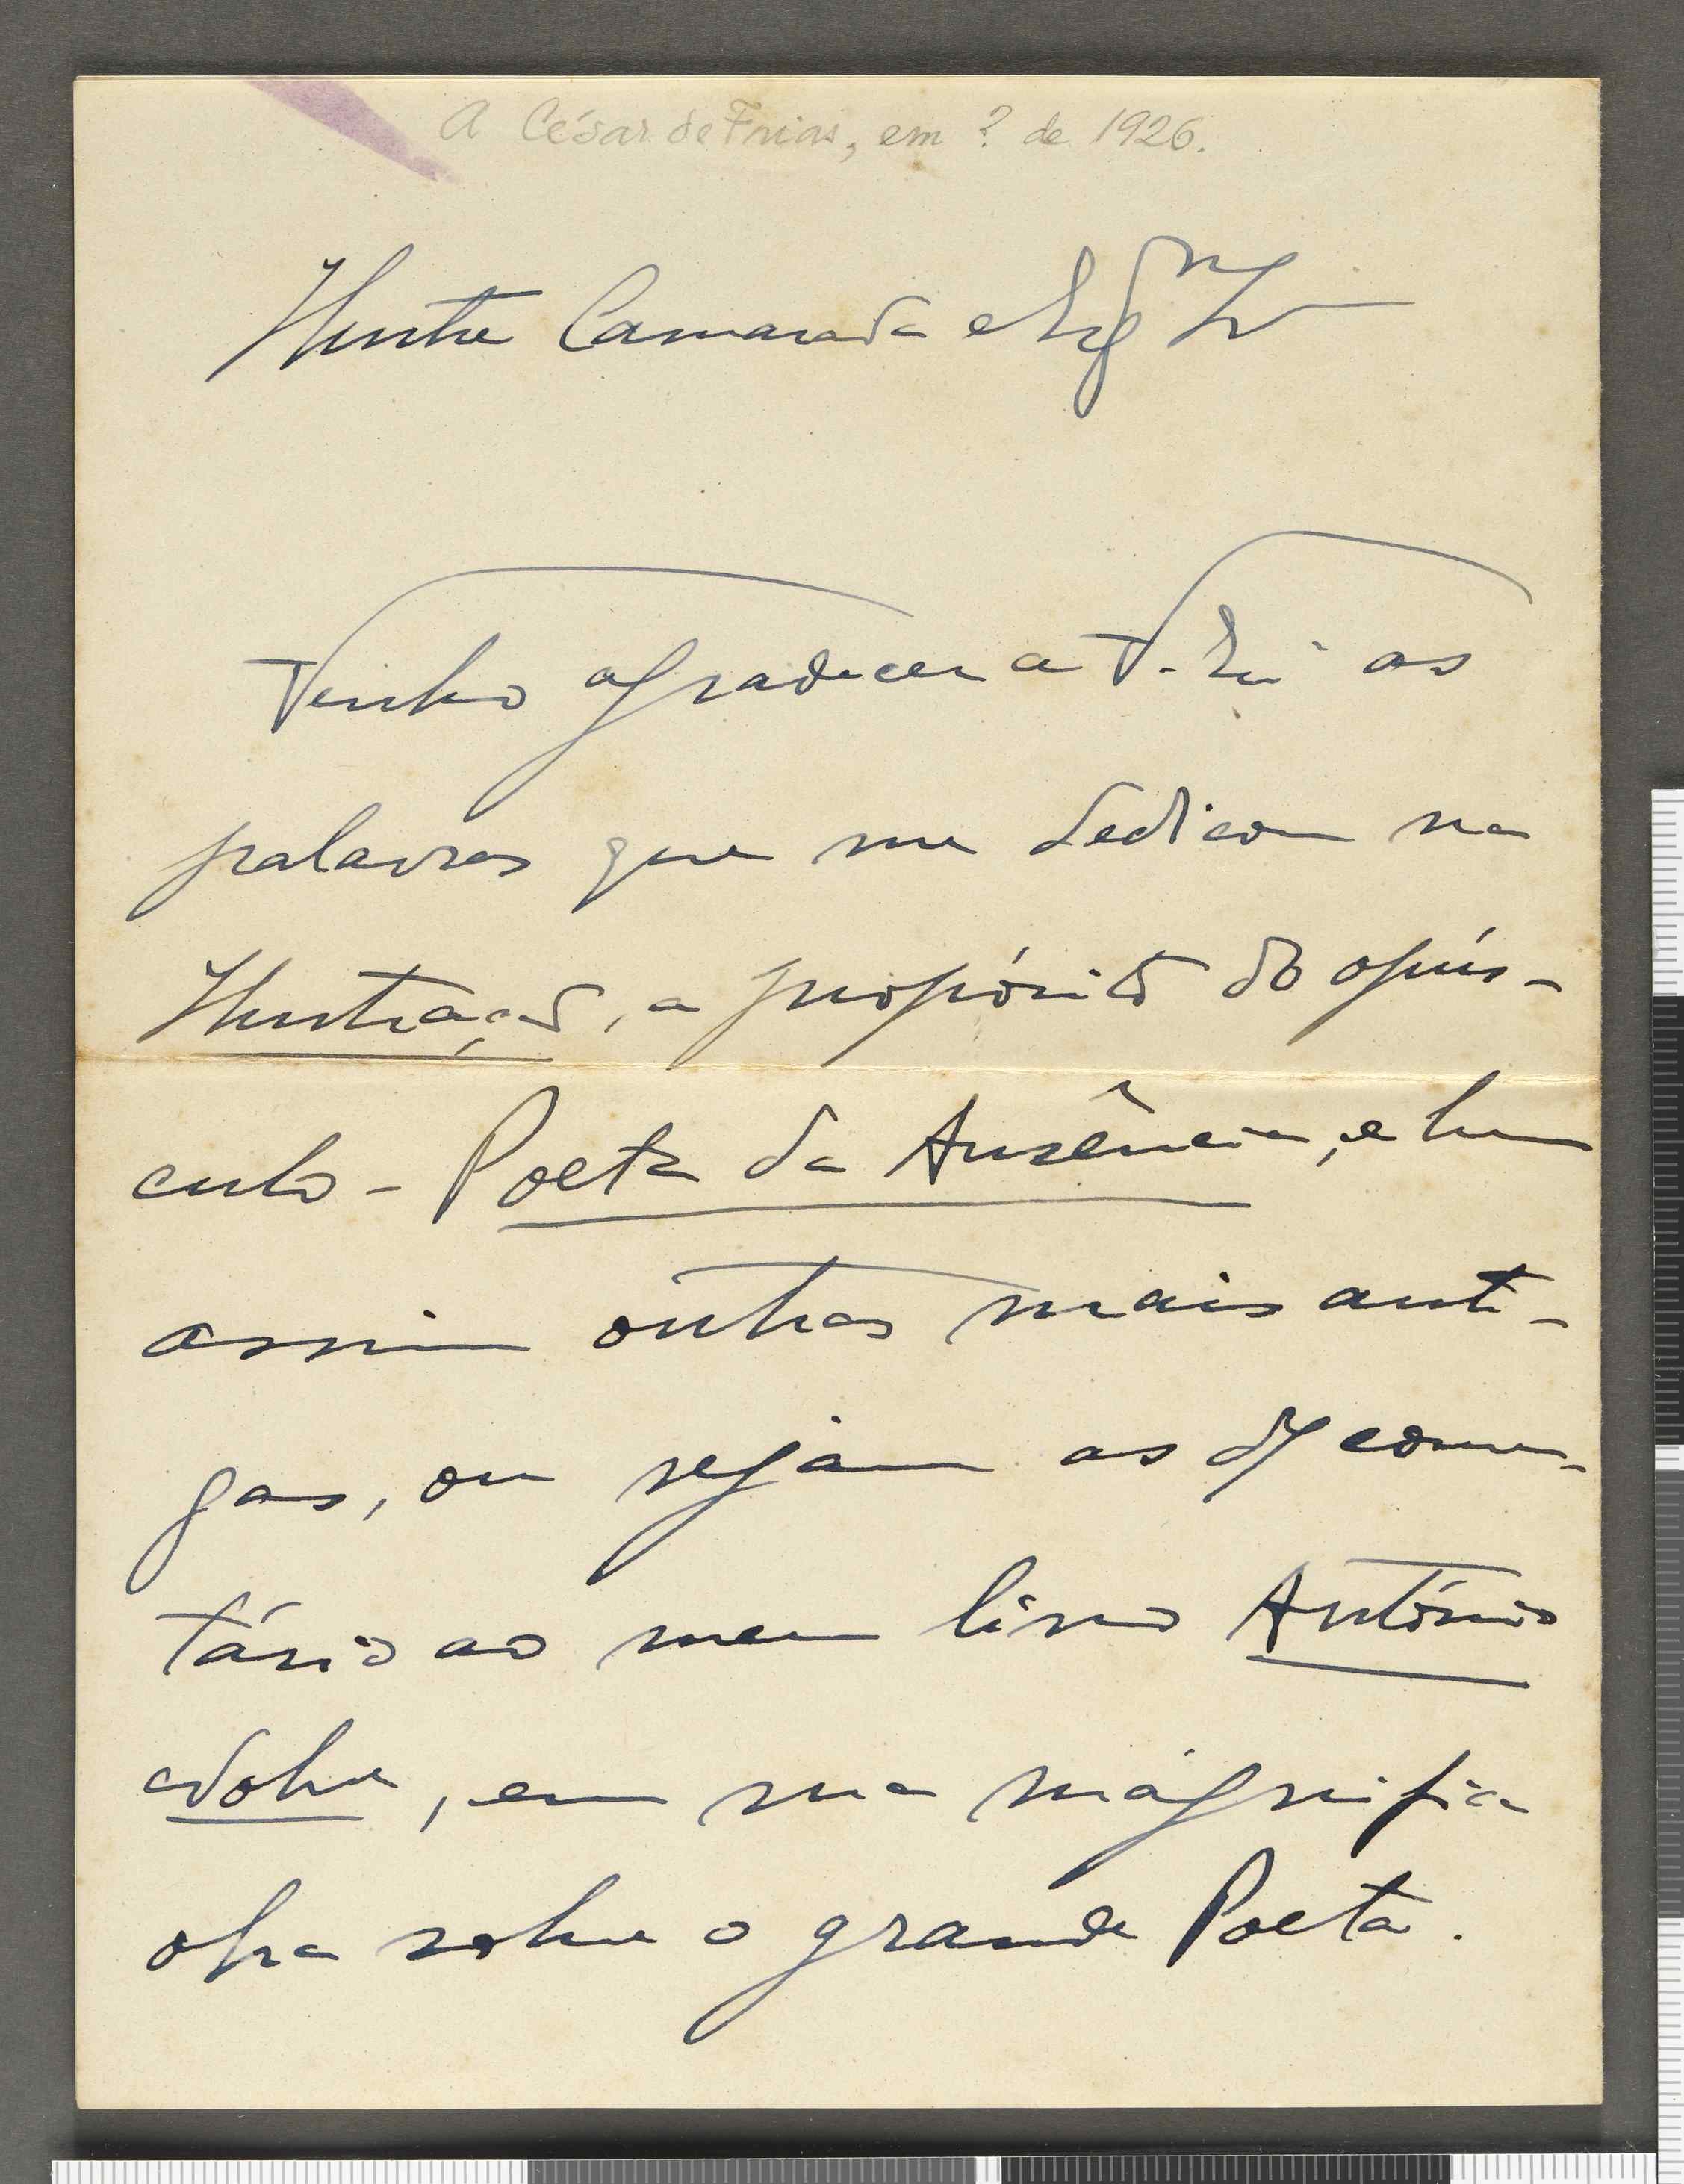 A César de Frias, em ? de 1926.
Ilustre Camarada e
Venho agradecer a V. Ex.ª as
palavras que me dedicou na
Ilustração, a propósito do opús-
culo - Poeta da Ausência, e bem
assim outras mais anti-
gas, ou sejam as de comen-
tário ao meu livro António
Nobre, em sua magnifica
obra sobre o grande Poeta.